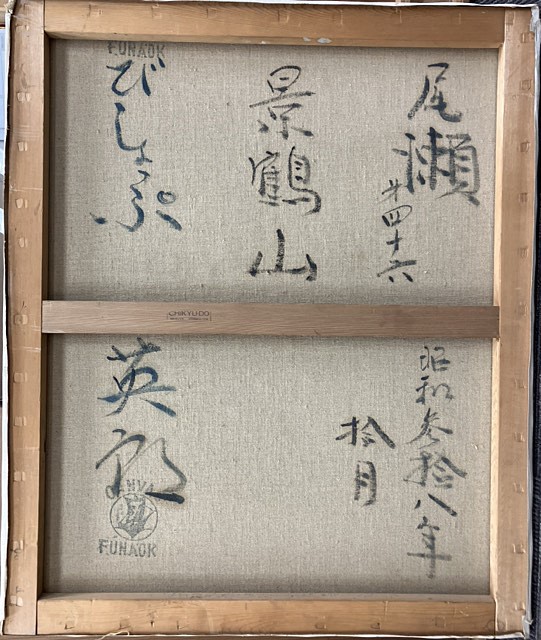 尾瀬
才四十六
昭和参拾八年
拾月
景鶴山
びしょぷ
英郎
FUNAOK
CHIKYU-DO
FUNAOK